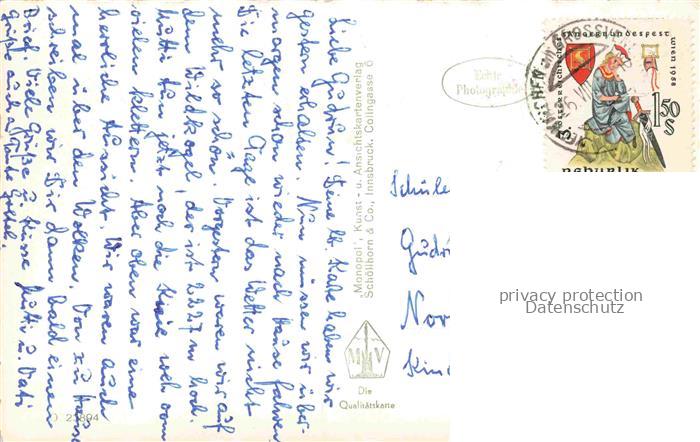 Liebe Gudrun! Deine lb. Karte haben wir
gestern erhalten. Nun müssen wir über-
morgen schon wieder nach Hause fahren.
Die letzten Tage ist das Wetter nicht
mehr so schön. Vorgestern waren wir auf
dem Wildkogel! der ist 2227 m hoch.
Mutti tun jetzt noch die Knie weh vom
vielen klettern. Aber oben war eine
herrliche Aussicht. Wir waren auch
mal über den Wolken. Von zu Hause
schreiben wir Dir dann bald einen
Brief. Viele Grüße u. Küsse Mutti u. Vati
Grüße auch an Tante
"Monopol", Kunst- u. Ansichtskartenverlag
Schöllhorn & Co., Innsbruck, Colingasse 6
MV
Die
Qualitätskarte
23894
Echte
Photographie
SÄNGERBUNDESFEST
WIEN 1958
1.50
S
REPUBLIK
Schüle
Gudr
Nor
Kin
privacy protection
Datenschutz